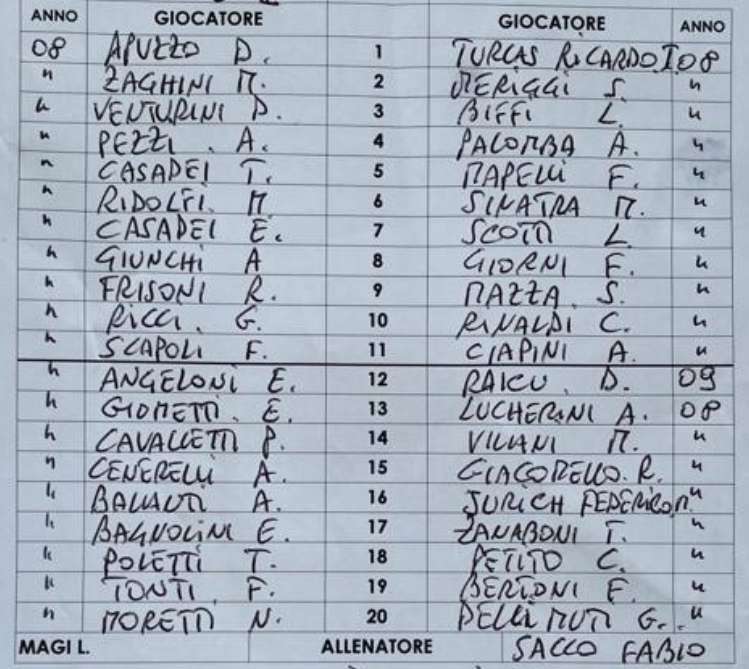 ANNO GIOCATORE GIOCATORE ANNO
08 APUZZO D. 1 TURCAS RICARDO I. 08
" ZAGHINI M. 2 MERIGGI S. "
" VENTURINI D. 3 BIFFI L. "
" PEZZI A. 4 PALOMBA A. "
" CASADEI T. 5 MAPELLI F. "
" RIDOLFI M 6 SINATRA M. "
" CASADEI E. 7 SCOTTI L. "
" GIUNCHI A 8 GIORNI F. "
" FRISONI R. 9 MAZZA S. "
" RICCI G. 10 RINALDI C. "
" SCAPOLI F. 11 CIAPINI A. "
" ANGELONI E. 12 RAICU D. 09
" GIOMETTI E. 13 LUCHERINI A. 08
" CAVALLETTI P. 14 VILLANI M. "
" CENERELLI A. 15 GIACOMELLO R. "
" BALLAUTI A. 16 JURICH FEDERICO M. "
" BAGNOLINI E. 17 ZANABONI T. "
" POLETTI T. 18 PETITO C. "
" TONTI F. 19 BERTONI F. "
" MORETTI N. 20 DELLI MUTI G. "
MAGI L. ALLENATORE SACCO FABIO